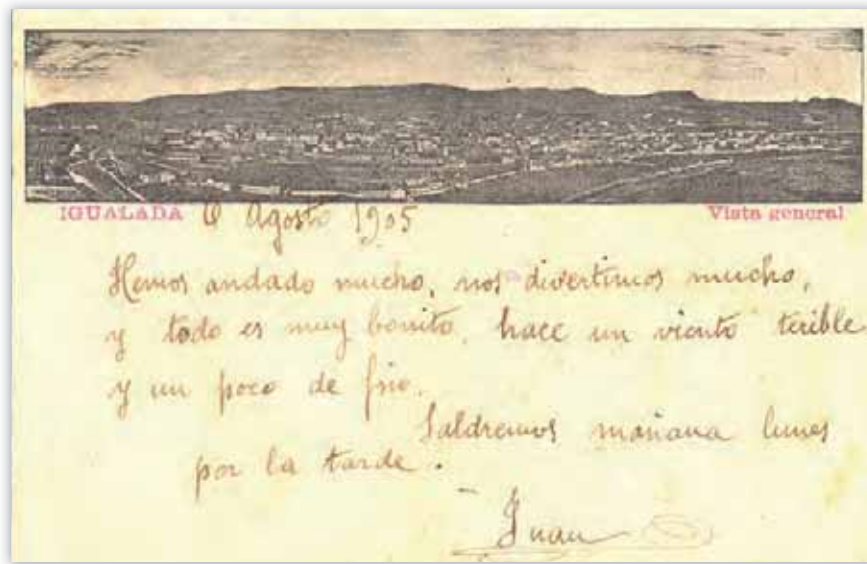 IGUALADA 6 Agosto 1905 Vista general
Hemos andado mucho, nos divertimos mucho,
y todo es muy bonito, hace un viento terible
y un poco de frio.
Saldremos mañana lunes
por la tarde.
Juan